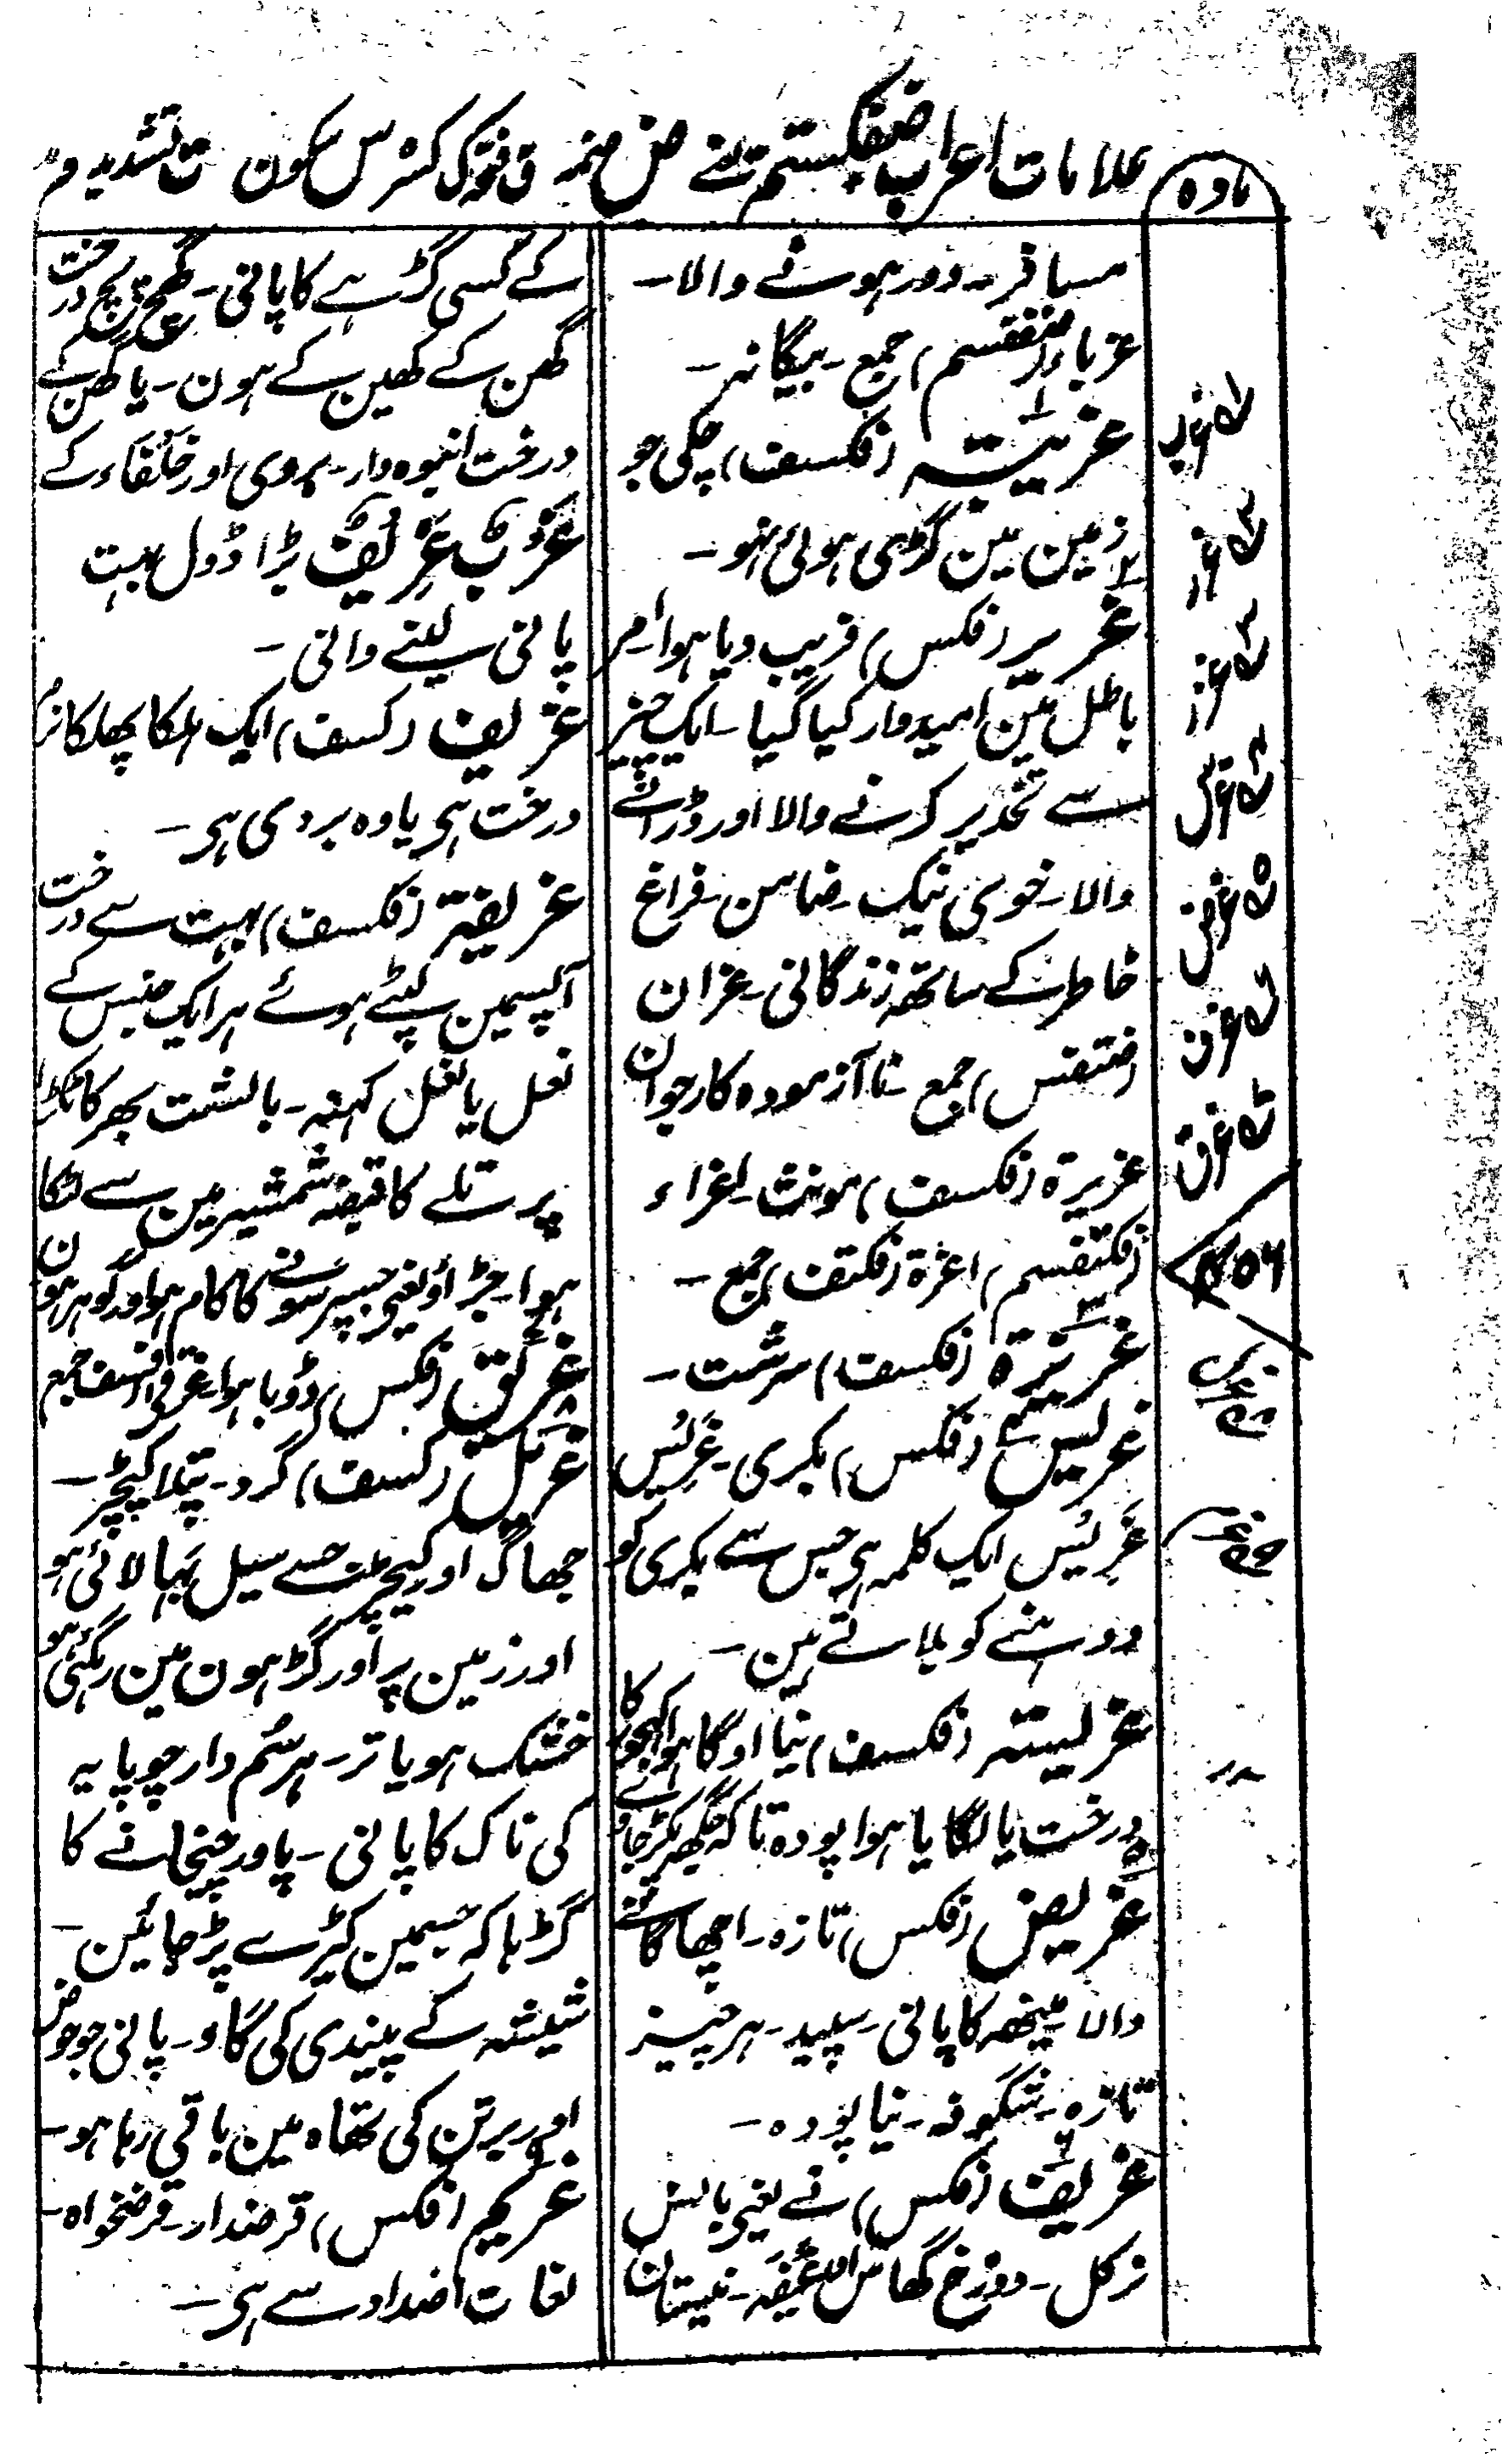 مادہ
علامات اعراب ضفکستم یعنے ض ضمہ ف فتحہ ک کسرہ س سکون ت تشدید م
مسافر۔ دور ہونے والا۔
غرباء (ضفتسم) جمع۔ بیگانہ۔
غریبۃ (فکسف) چکی جو
زمین مین گڑی ہوئی نہو۔
غریر (فکس) فریب دیا ہوا۔ امر
باطل مین امیدوار کیا گیا۔ ایک چیز
سے تحذیر کرنے والا اور ڈرانے
والا۔ خوی نیک۔ ضامن۔ فراغ
خاطر کے ساتھ زندگانی۔ غران
(ضتفس) جمع۔ نا آزمودہ کار جوان
غریرۃ (فکسف) مونث۔ اغراء
(فکتفسم) اغرۃ (فکتف) جمع۔
غریزۃ (فکسف) سرشت۔
غریس (فکس) بکری۔ غَرِیُس
غَرِیُس ایک کلمہ ہی جس سے بکری کو
دوہنے کو بلاتے ہین۔
غریستہ (فکسف) نیا اوگا ہوا کھجور کا
درخت یا لگایا ہوا پودہ تاکہ جگہ پکڑ جاوے
غریض (فکس) تازہ۔ اچھا گانے
والا۔ مینھہ کا پانی۔ سپید۔ ہر چیز
تازہ۔ شگوفہ۔ نیا پودہ۔
غریف (فکس) نے یعنی بانس
نرکل۔ دوزخ گھاس۔ نیستان
کے کسی گڑہے کا پانی۔ درخت
گھن کے کھین کے ہون۔ یا گھن کے
درخت انبوہ دار۔ بروی اور خلفاء کے
غَرْبٌ غَرِیْفٌ بڑا ڈول بہت
پانی لینے والی۔
غریف (کسف) ایک ہلکا پھلکا نرم
درخت ہی یا وہ بردی ہی۔
غریفۃ (فکسف) بہت سے درخت
آپسمین لپٹے ہوئے ہر ایک جنس کے
نعل یا نعل کہنہ۔ بالشت بھر کا ٹکڑا
پرتلے کا قبضہ شمشیر مین سے لٹکا
ہوا۔ جڑاؤ یعنی جسپر سونے کا کام ہو اور گوہر ہون
غریق (فکس) ڈوبا ہوا۔ غرقی (فسف) جمع
غریل (کسف) گرد۔ پتلا کیچڑ۔
جھاگ اور کیچڑ جسے سیل بہا لائی ہو
اور زمین پر اور گڑہون مین رہگئی ہو
خشک ہو یا تر۔ ہر سُم دار چوپایہ
کی ناک کا پانی۔ پاور چنجانے کا
گڑہا کہ جسمین کیڑے پڑ جائین۔
شیشہ کے پیندی کی گاد۔ پانی جو حوض
اور برتن کی تھاہ مین باقی رہا ہو۔
غریم (فکس) قرضدار۔ قرضخواہ۔
لغات اضداد سے ہی۔
غرب
غرر
غرز
غرس
غرض
غرف
غرق